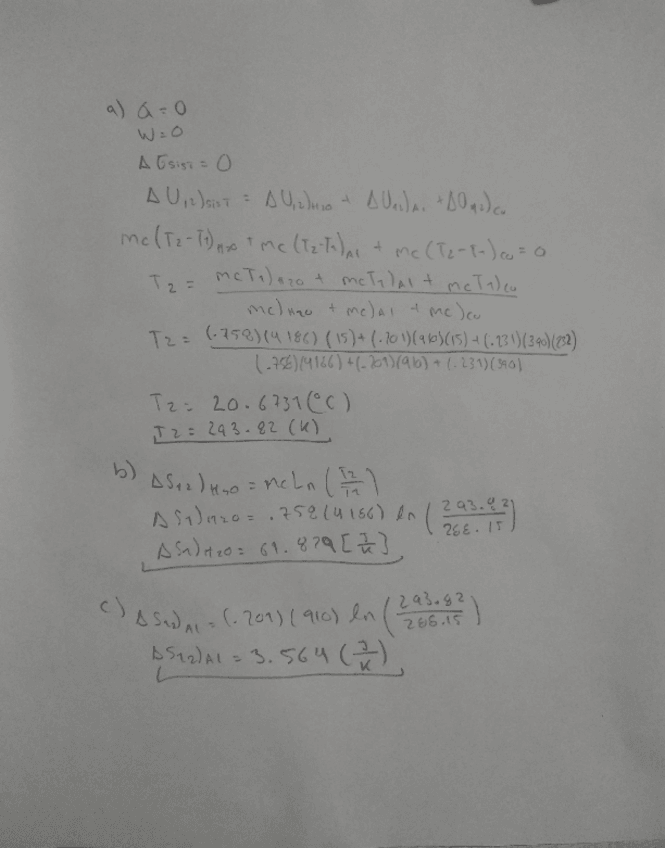 a) Q = 0
W = 0
Δ Esist = 0
Δ U12)SIST = Δ U12)H2O + Δ U12)Al + ΔU12)Cu
mc(T2-T1)H2O + mc(T2-T1)Al + mc(T2-T1)Cu = 0
T2 = mcT1)H2O + mcT1)Al + mcT1)Cu
mc)H2O + mc)Al + mc)Cu
T2 = (.758)(4186)(15)+(.201)(910)(15)+(.231)(390)(232)
(.758)(4186)+(.201)(910)+(.231)(390)
T2 = 20.6731(°C)
T2 = 293.82 (K)
b) ΔS12)H2O = mcLn(T2/T1)
ΔS12)H2O = .758(4186) ln(293.82/288.15)
ΔS12)H2O = 61.879[J/K]
c) ΔS12)Al = (.201)(910) ln(293.82/288.15)
ΔS12)Al = 3.564(J/K)